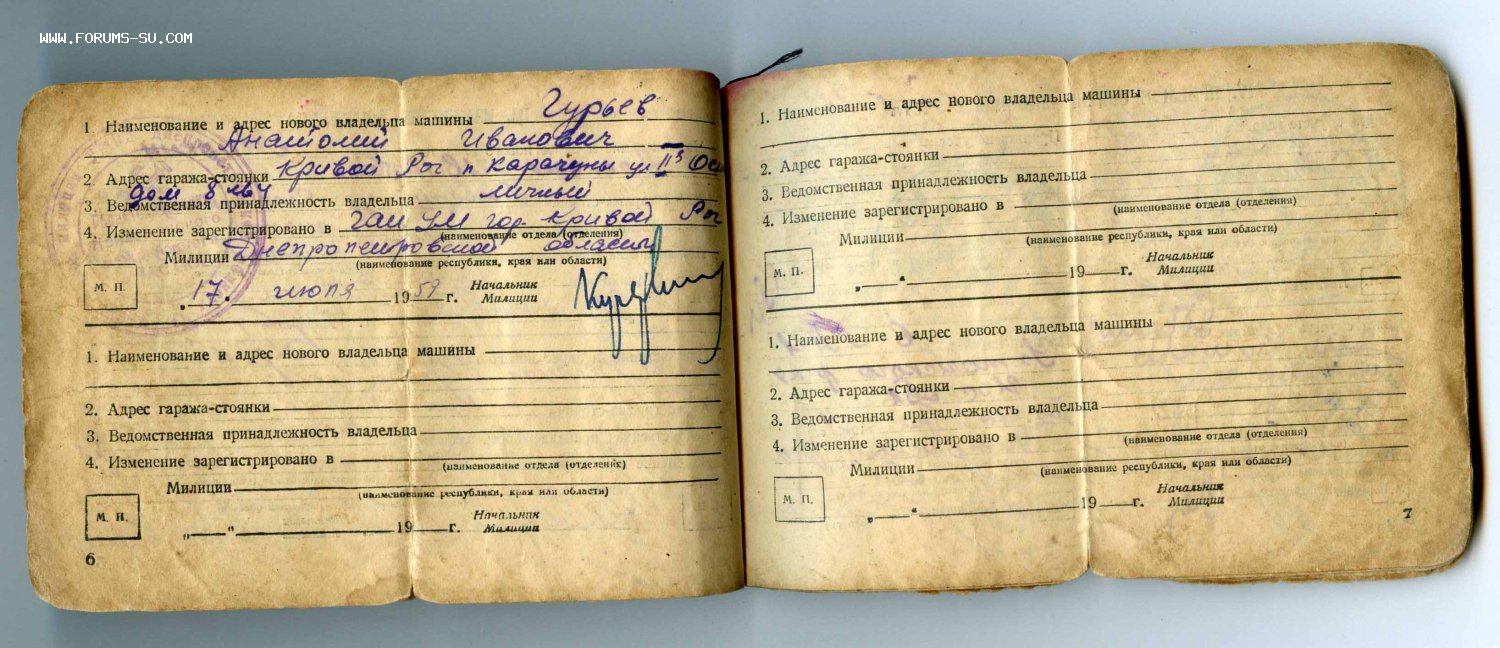 WWW.FORUMS-SU.COM
1. Наименование и адрес нового владельца машины Гурьев
Анатолий Иванович
2. Адрес гаража-стоянки Кривой Рог п Карачуны ул
дом 8
3. Ведомственная принадлежность владельца личный
4. Изменение зарегистрировано в ГАИ УМ гор. Кривой Рог
(наименование отдела (отделения)
Милиции Днепропетровской области
(наименование республики, края или области)
М. П.
„17" июля 1959 г. Начальник
Милиции
1. Наименование и адрес нового владельца машины
2. Адрес гаража-стоянки
3. Ведомственная принадлежность владельца
4. Изменение зарегистрировано в
(наименование отдела (отделения)
Милиции
(наименование республики, края или области)
М. П.
„ " 19 г. Начальник
Милиции
6
1. Наименование и адрес нового владельца машины
2. Адрес гаража-стоянки
3. Ведомственная принадлежность владельца
4. Изменение зарегистрировано в
(наименование отдела (отделения)
Милиции
(наименование республики, края или области)
М. П.
„ " 19 г. Начальник
Милиции
1. Наименование и адрес нового владельца машины
2. Адрес гаража-стоянки
3. Ведомственная принадлежность владельца
4. Изменение зарегистрировано в
(наименование отдела (отделения)
Милиции
(наименование республики, края или области)
М. П.
„ " 19 г. Начальник
Милиции
7